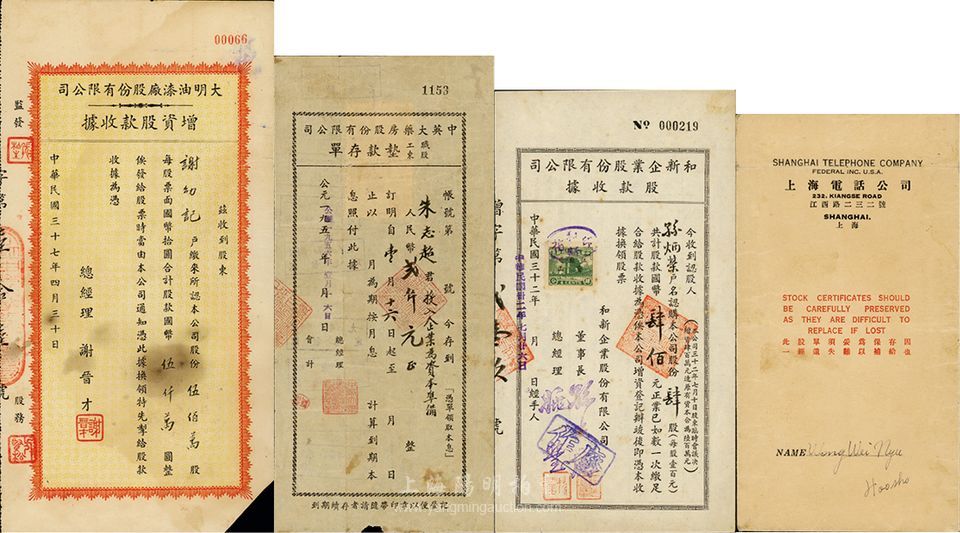 00066
大明油漆廠股份有限公司
增資股款收據
茲收到股東
謝幼記 戶繳來所認本公司股份 伍佰萬 股
每股票面國幣拾圓合計股款國幣 伍仟萬 圓整
俟發給股票時當由本公司通知憑此據換領特先掣給股款
收據為憑
總經理 謝晉才
中華民國三十七年四月三十日
監發
股務
1153
中英大藥房股份有限公司
職工股東墊款存單
帳號第 號
今存到「憑單領取本息」
朱志超 君 收入企業為資本準備
人民幣 貳仟元正 整
訂明自壹月十六日起至 月 日
止以 月為期按月息 計算到期本
息照付此據
總經理
會計
公元一九五
記登便以章印帶隨請者存續期到
No 000219
和新企業股份有限公司
股款收據
今收到認股人
孫炳榮 戶名認購本公司股份 肆 股(每股壹百元)
共計股款國幣 肆佰 元正業已如數一次繳足
合給股款收據為憑俟本公司增資登記辦竣後即憑本收
據換領股票
和新企業股份有限公司
董事長
總經理
經手人
中華民國三十二年 月 日
中華民國卅二年七月廿六日
SHANGHAI TELEPHONE COMPANY
FEDERAL INC. U.S.A.
上海電話公司
232, KIANGSE ROAD
江西路二三二號
SHANGHAI.
上海
STOCK CERTIFICATES SHOULD
BE CAREFULLY PRESERVED
AS THEY ARE DIFFICULT TO
REPLACE IF LOST
此股單須妥爲保存因
一經遺失難以補給也
NAME Wing Wei Nyu
上海陽明拍賣
www.yangmingauction.com